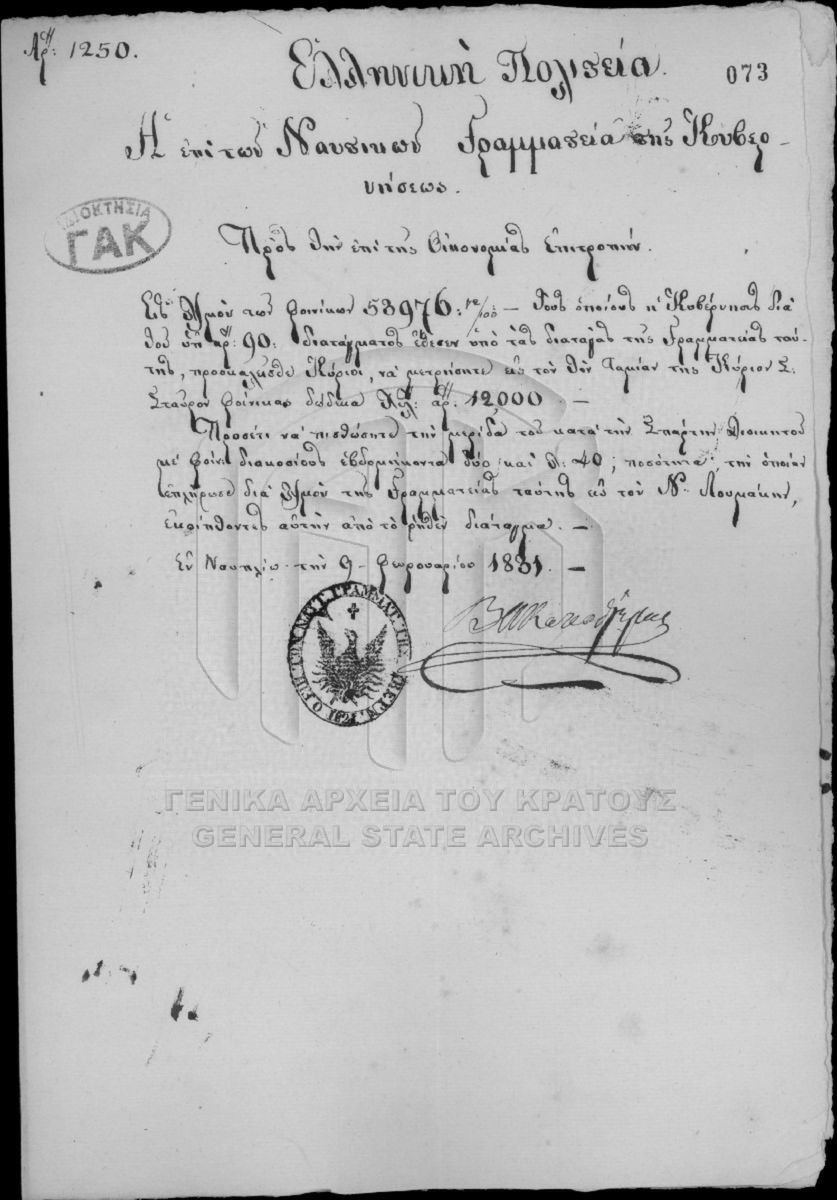 Ἀρ: 1250.
Ἑλληνικὴ Πολιτεία.
073
Ἡ ἐπὶ τῶν Ναυτικῶν Γραμματεία τῆς Κυβερ-
νήσεως.
ΙΔΙΟΚΤΗΣΙΑ
ΓΑΚ
Πρὸς τὴν ἐπὶ τῆς Οἰκονομίας Ἐπιτροπήν.
Εἰς λ/σμὸν τῶν φοινίκων 53976: /100 – τοὺς ὁποίους ἡ Κυβέρνησις διὰ
τοῦ ὑπ' ἀρ: 90: διατάγματος ἔθεσεν ὑπὸ τὰς διαταγὰς τῆς Γραμματείας ταύ-
της, προσκαλεῖσθε Κύριοι, νὰ μετρήσητε εἰς τὸν Ταμίαν της Κύριον Σ:
Σταῦρον φοίνικας δώδεκα χιλ: ἀρ: 12000 –
Προσέτι νὰ πιστώσητε τὴν μερίδα τοῦ κατὰ τὴν Σπάρτην Διοικητοῦ
μὲ φοίνι: διακοσίους ἑβδομήκοντα δύο καὶ λ: 40; ποσότητα, τὴν ὁποίαν
ἐπλήρωσε διὰ λ/σμὸν τῆς Γραμματείας ταύτης εἰς τὸν Ν. Λουμάκην,
ἐκπίπτοντες αὐτὴν ἀπὸ τὸ ῥηθὲν διάταγμα. –
Ἐν Ναυπλίῳ τὴν 9 Φεβρουαρίου 1831. –
ΓΕΝΙΚΑ ΑΡΧΕΙΑ ΤΟΥ ΚΡΑΤΟΥΣ
GENERAL STATE ARCHIVES